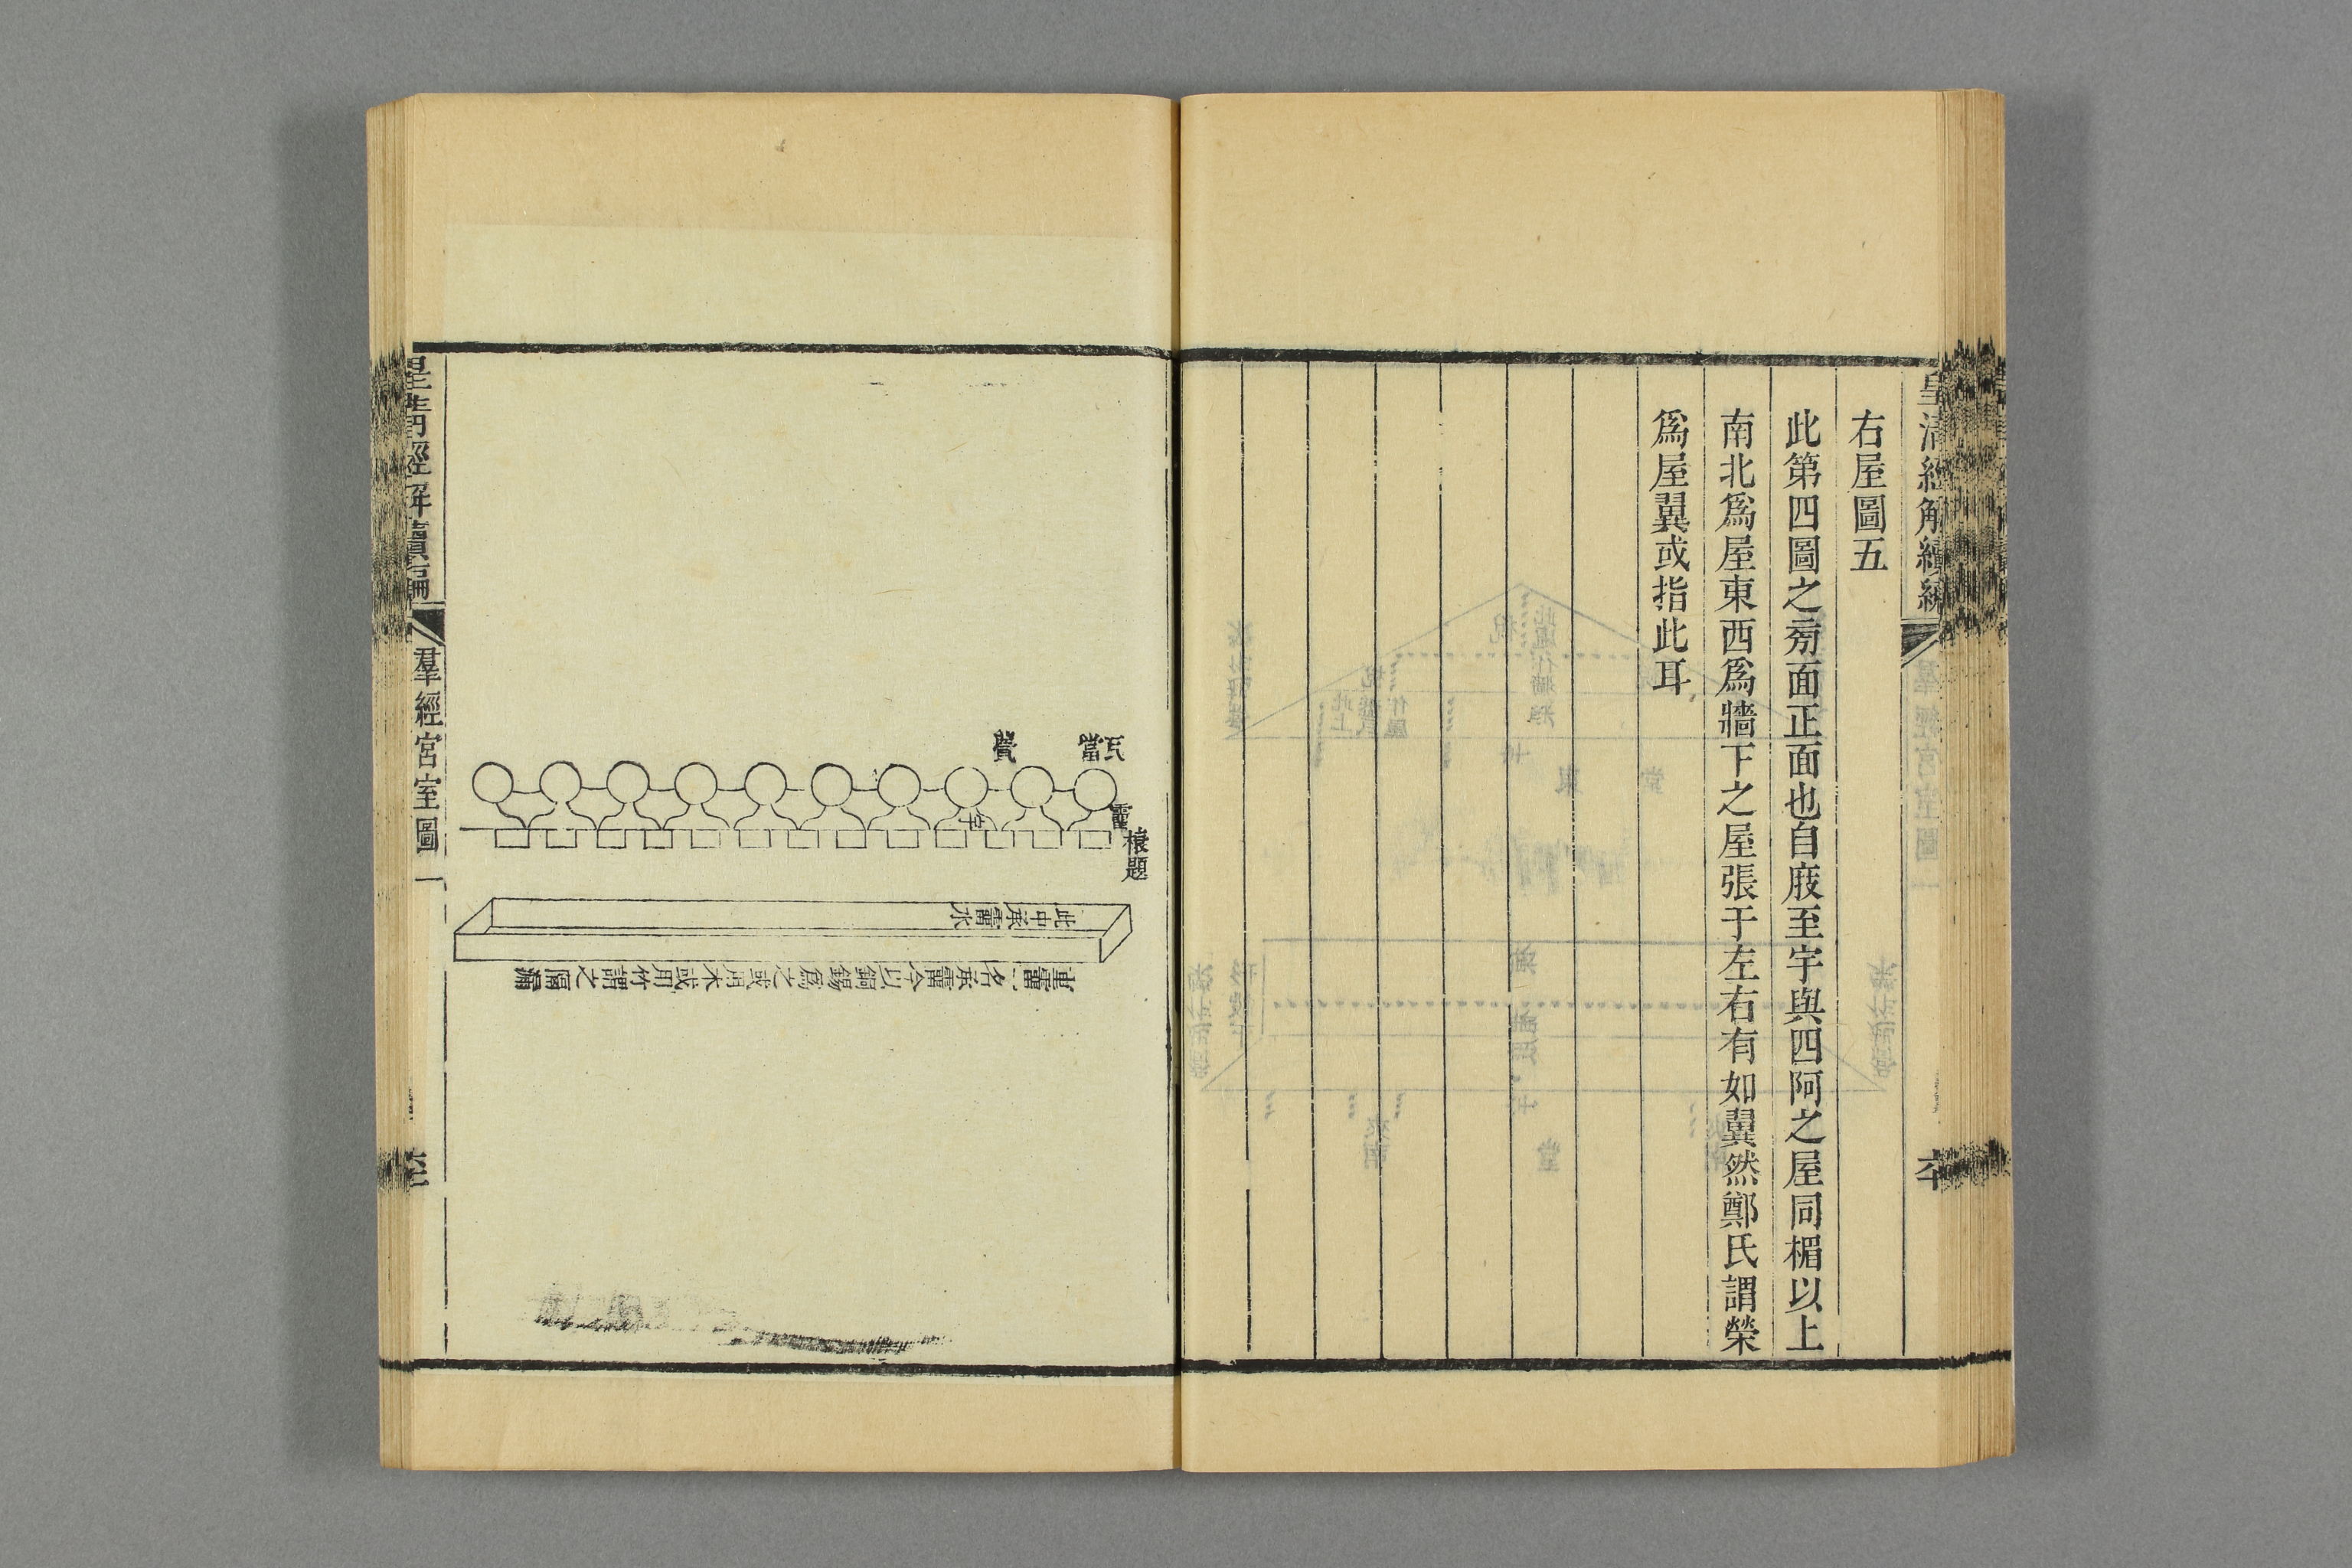 皇清經解續編
右屋圖五
此第四圖之旁面正面也自庪至宇與四阿之屋同楣以上
南北爲屋東西爲牆下之屋張于左右有如翼然鄭氏謂榮
爲屋翼或指此耳
瓦當
甍
霤
宇
榱題
此中承霤水
重霤一名承霤今以銅錫爲之或用木或用竹謂之隔漏
皇清經解續編
羣經宮室圖一